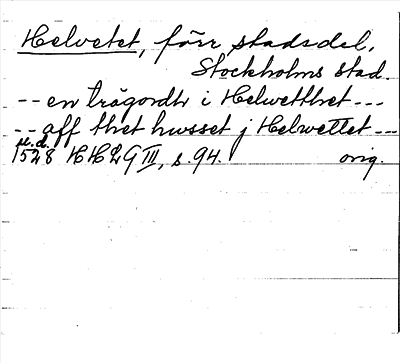 Helvetet, förr stadsdel,
Stockholms stad.
-- en trägordh i Helwetthet ---
-- aff thet hwsset j Helwettet ---
u.d.
1528 HH29 III, s. 94. orig.